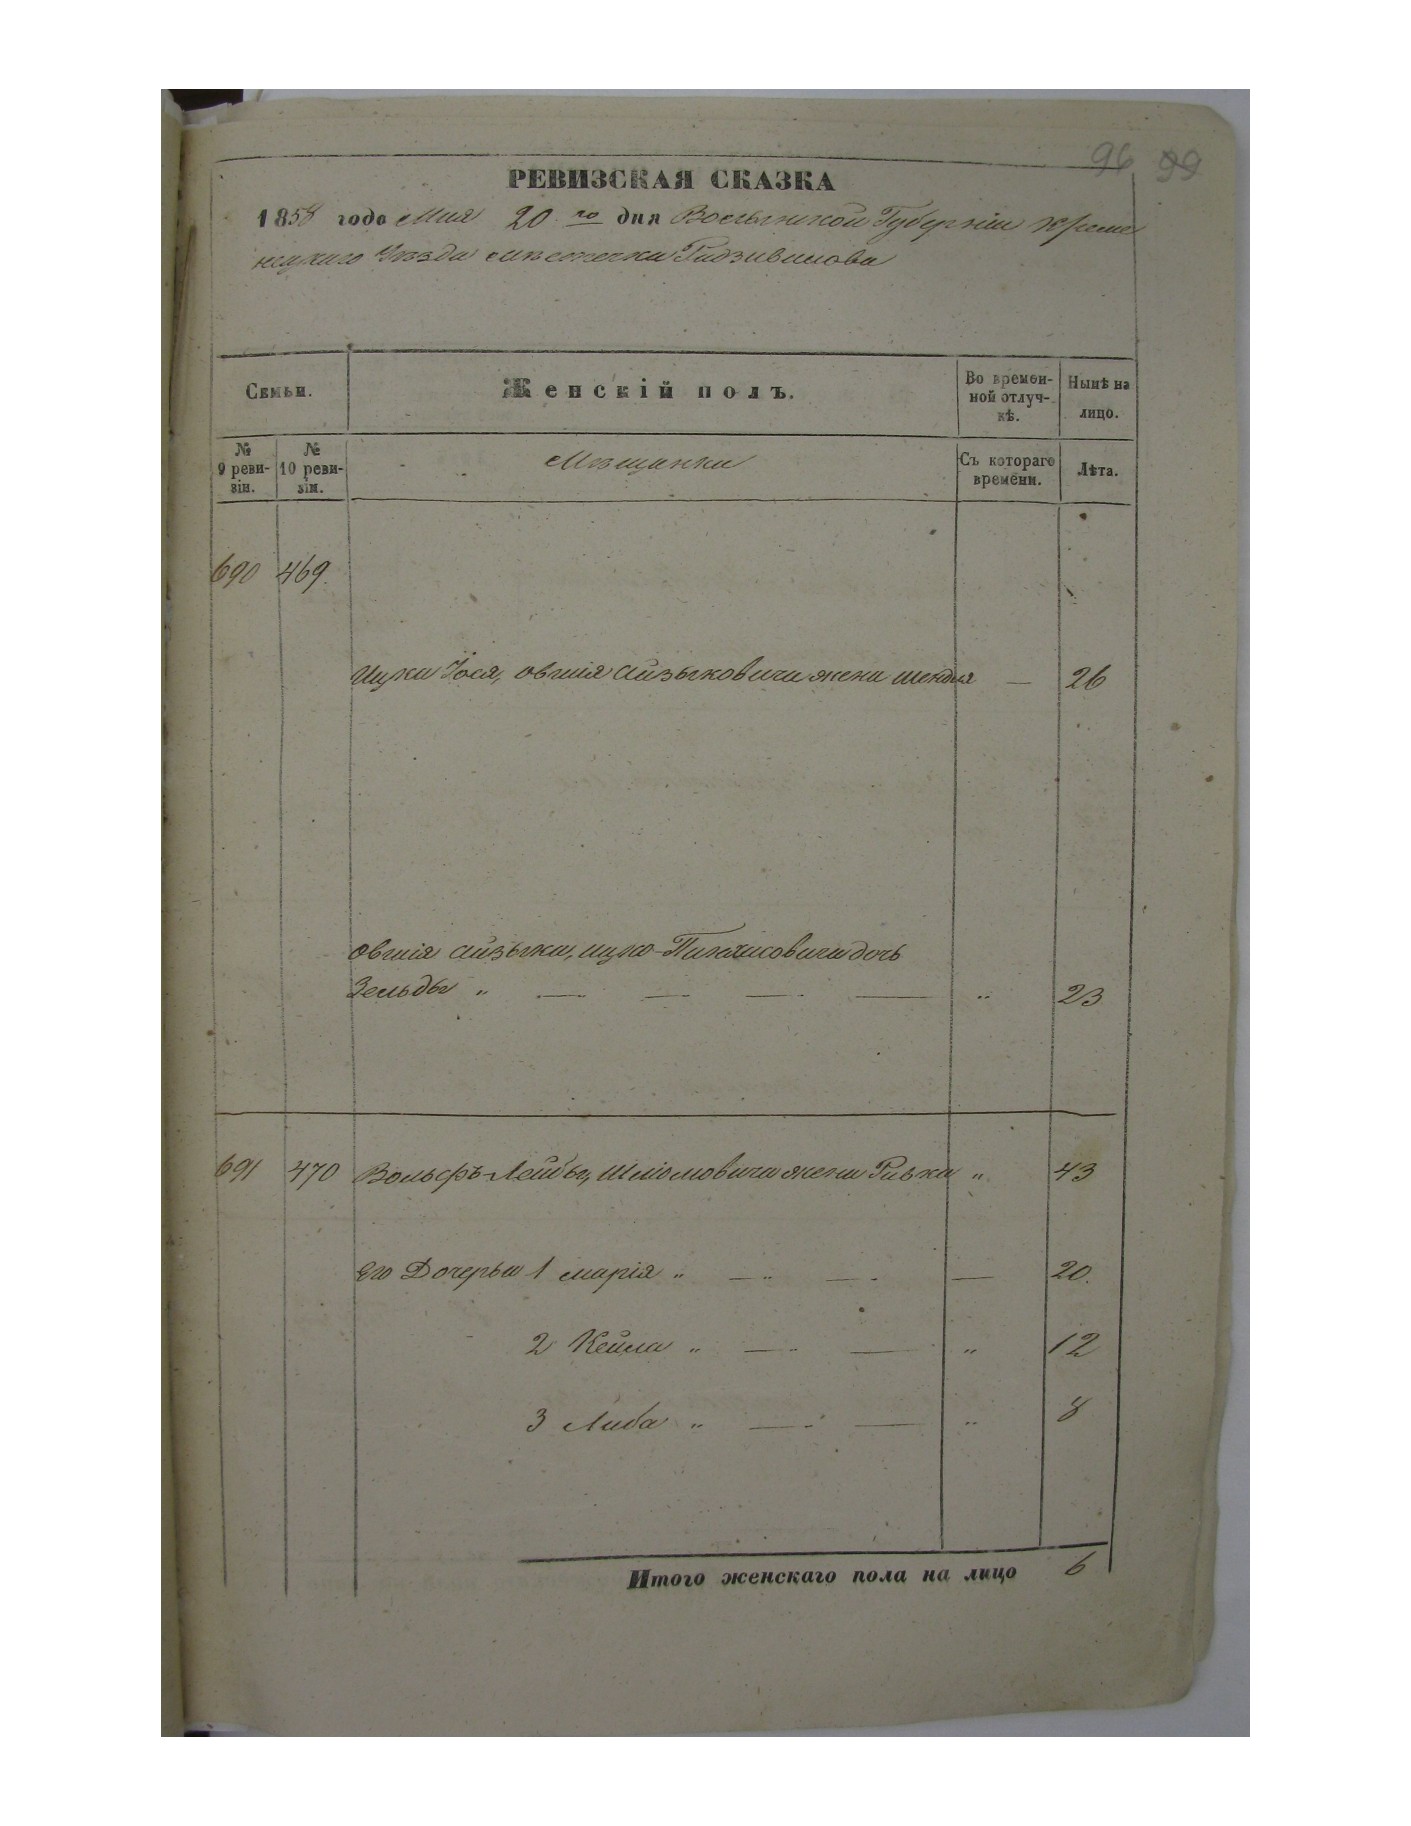 96 99
РЕВИЗСКАЯ СКАЗКА
1858 года Мая 20 го дня Волынской Губерніи Креме
нецкаго Уѣзда мѣстечка Радзивилова
Семьи.
Женскій полъ.
Во времен-
ной отлуч-
кѣ.
Нынѣ на
лицо.
№
9 реви-
зіи.
№
10 реви-
зіи.
Мѣщанки
Съ котораго
времени.
Лѣта.
690 469.
Ицка Іося, Овшія Айзыковича жена Шендля — 26
Овшія Айзыка, Ицко-Пинхасовича дочь
Зельда „ — — — — „ 23
691 470 Вольфъ-Лейбы, Шліомовича жена Ривка „ 43
Его Дочерьи 1 Марія „ — „ — — 20.
2 Кейла „ — — „ 12
3 Либа „ — — „ 8
Итого женскаго пола на лицо 6